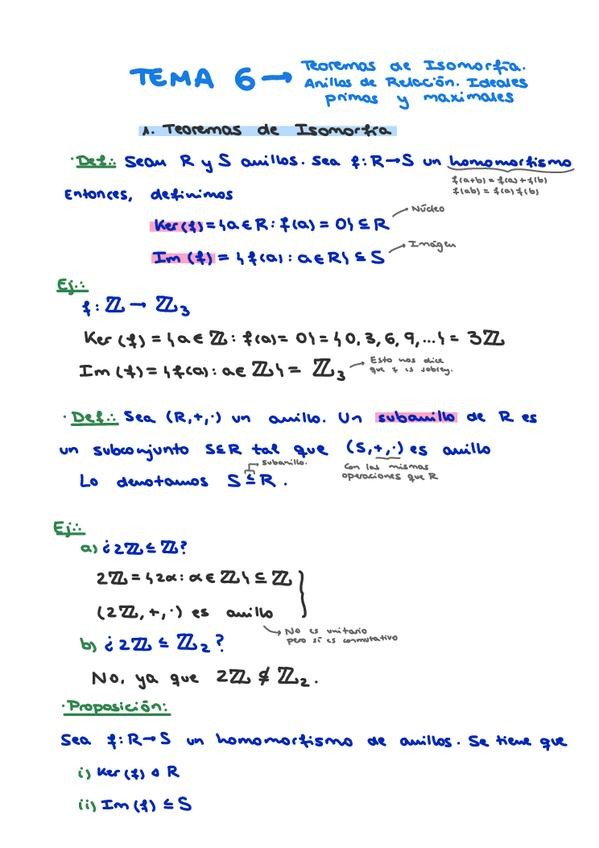 TEMA 6 → Teoremas de Isomorfía.
Anillos de Relación. Ideales
primos y maximales
1. Teoremas de Isomorfía
· Def.: Sean R y S anillos. Sea f: R→S un homomorfismo
f(a+b) = f(a) + f(b)
f(ab) = f(a) f(b)
Entonces, definimos
Ker (f) = {a ∈ R : f(a) = 0} ⊆ R → Núcleo
Im (f) = {f(a) : a ∈ R} ⊆ S → Imágen
Ej.:
f: ℤ → ℤ₃
Ker (f) = {a ∈ ℤ : f(a) = 0} = {0, 3, 6, 9, ...} = 3ℤ
Im (f) = {f(a) : a ∈ ℤ} = ℤ₃ → Esto nos dice
que f es sobrey.
· Def.: Sea (R,+,·) un anillo. Un subanillo de R es
un subconjunto S⊆R tal que (S,+,·) es anillo
subanillo.
Con las mismas
operaciones que R
Lo denotamos S ≤ R.
Ej.:
a) ¿2ℤ ≤ ℤ?
2ℤ = {2α : α ∈ ℤ} ⊆ ℤ
(2ℤ, +, ·) es anillo
No es unitario
pero sí es conmutativo
b) ¿2ℤ ≤ ℤ₂?
No, ya que 2ℤ ⊈ ℤ₂.
· Proposición:
Sea f: R→S un homomorfismo de anillos. Se tiene que
i) Ker (f) ⊲ R
ii) Im (f) ≤ S